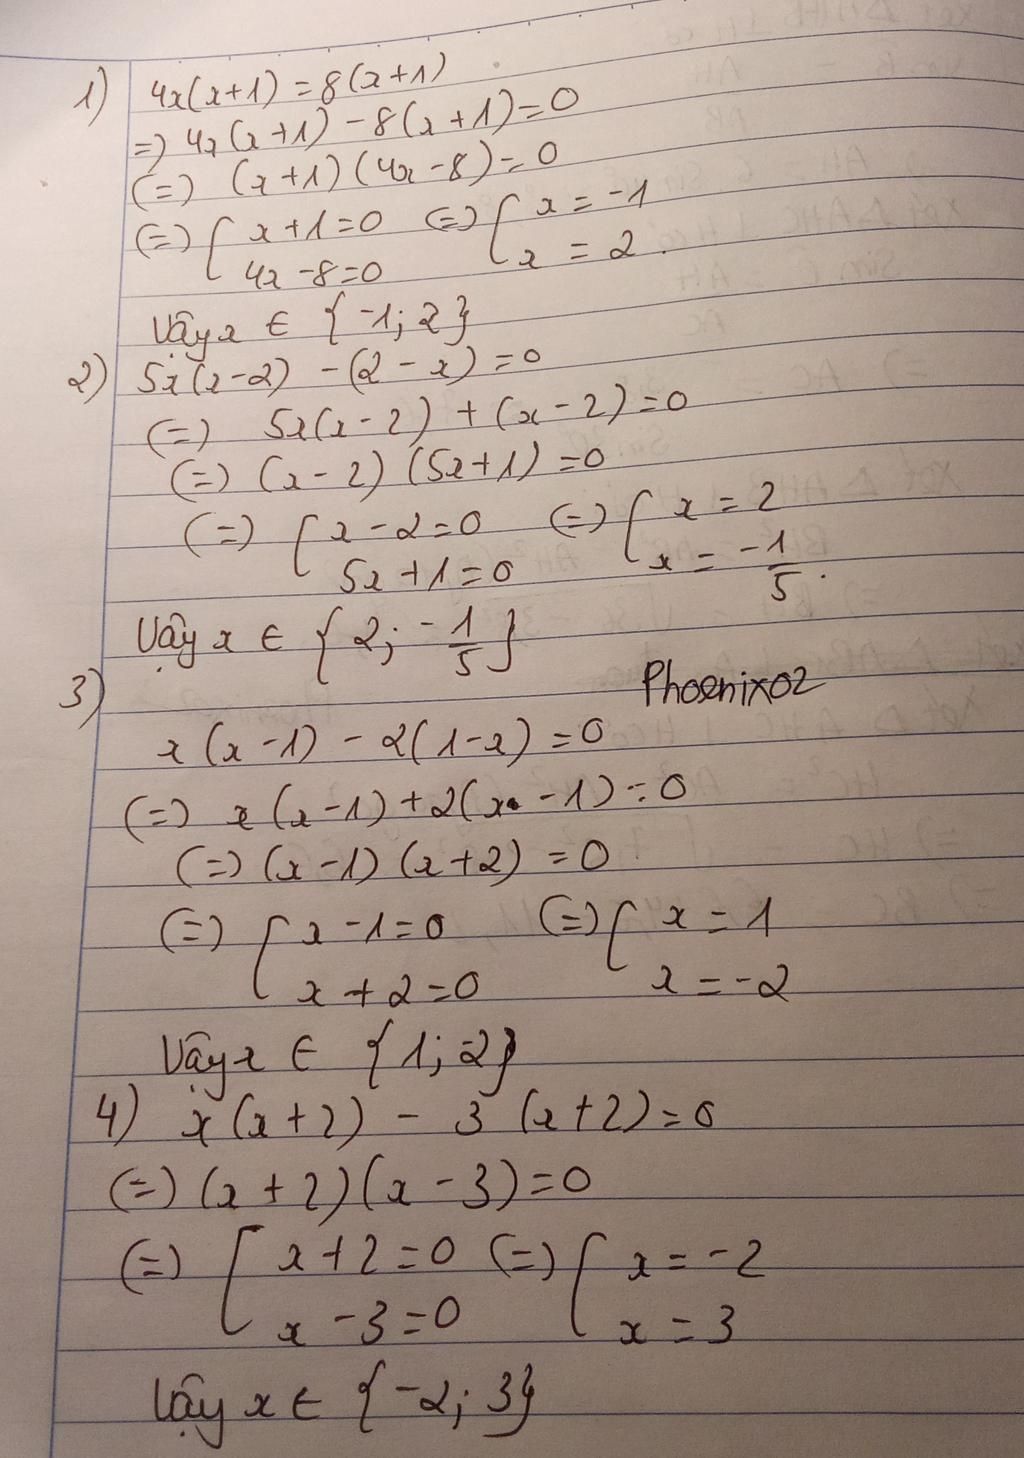 1) 4x(x+1) = 8(x+1)
=> 4x(x+1) - 8(x+1) = 0
(=) (x+1)(4x-8) = 0
(=) [ x+1=0 (=) [ x = -1
4x-8=0 x = 2.
Vậy x ∈ {-1; 2}
2) 5x(x-2) - (2-x) = 0
(=) 5x(x-2) + (x-2) = 0
(=) (x-2)(5x+1) = 0
(=) [ x-2=0 (=) [ x = 2
5x+1=0 x = -1/5.
Vậy x ∈ {2; -1/5}
3)
Phoenix02
x(x-1) - 2(1-x) = 0
(=) x(x-1) + 2(x-1) = 0
(=) (x-1)(x+2) = 0
(=) [ x-1=0 (=) [ x = 1
x+2=0 x = -2
Vậy x ∈ {1; -2}
4) x(x+2) - 3(x+2) = 0
(=) (x+2)(x-3) = 0
(=) [ x+2=0 (=) [ x = -2
x-3=0 x = 3
Vậy x ∈ {-2; 3}